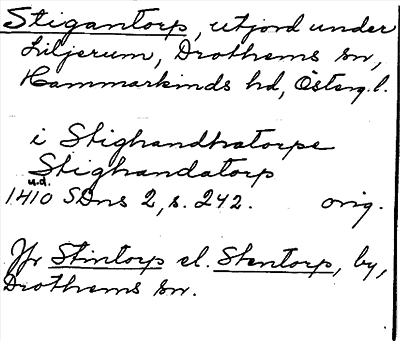 Stigantorp, utjord under
Liljerum, Drothems sn,
Hammarkinds hd, Österg. l.
i Stighandhatorpe
Stighandatorp
u.d.
1410 SDns 2, s. 242. orig.
Jfr Stintorp el. Stentorp, by,
Drothems sn.